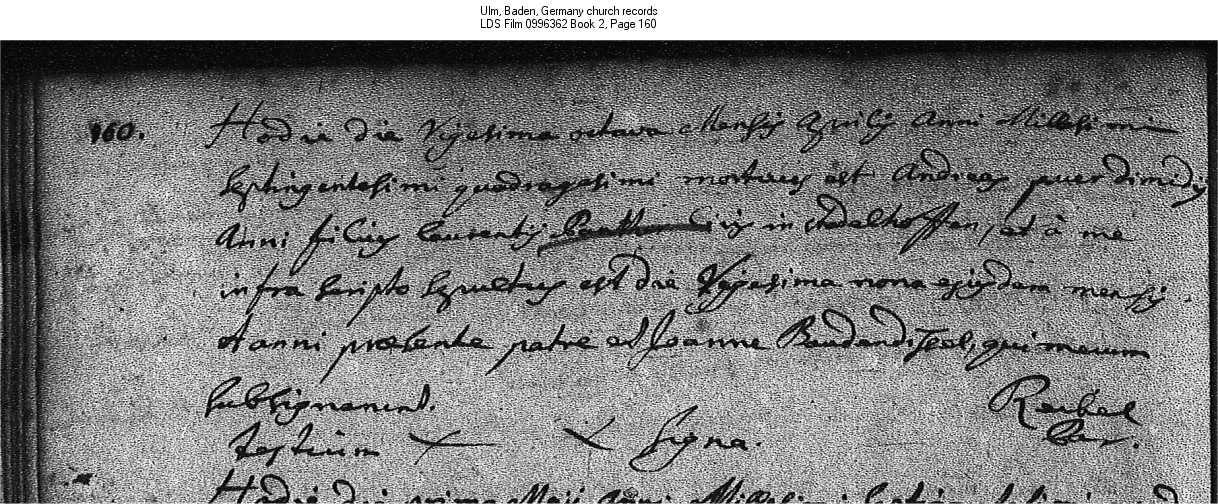 Ulm, Baden, Germany church records
LDS Film 0996362 Book 2, Page 160
160. Hodie die Vigesima octava Mensis Aprilis Anni Millesimi
Septingentesimi quadragesimi mortuus est Andreas puer dimidij
Anni filius Laurentij civis in et à me
infra scripto sepultus est die Vigesima nona ejusdem mensis
et anni præsente patre et Joanne qui mecum
subsignarunt. Reibel
testium signa. Par.
Hodie die prima Maij Anni